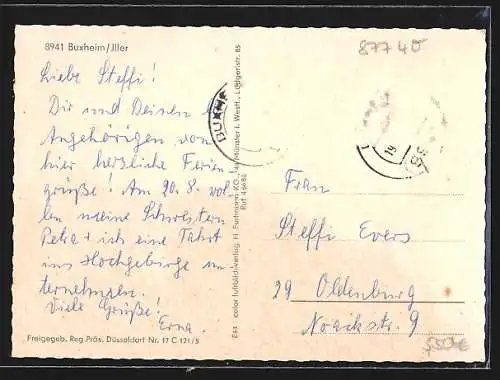 8941 Buxheim/Jller
8774D
Liebe Steffi!
Dir und Deinen
Angehörigen von
hier herzliche Ferien
grüße! Am 20.8. wol
len meine Schwestern
Petra + ich eine Fahrt
ins Hochgebirge un
ternehmen.
Viele Grüße!
Erna.
Freigegeb. Reg. Präs. Düsseldorf Nr. 17 C 121/5
E61 color luftbild-verlag, H. Fuhrmann KG, Münster i. Westf., Lütgenstr. 85
Ruf 46688
BUXHE
19
Frau
Steffi Evers
29 Oldenburg
Noackstr. 9